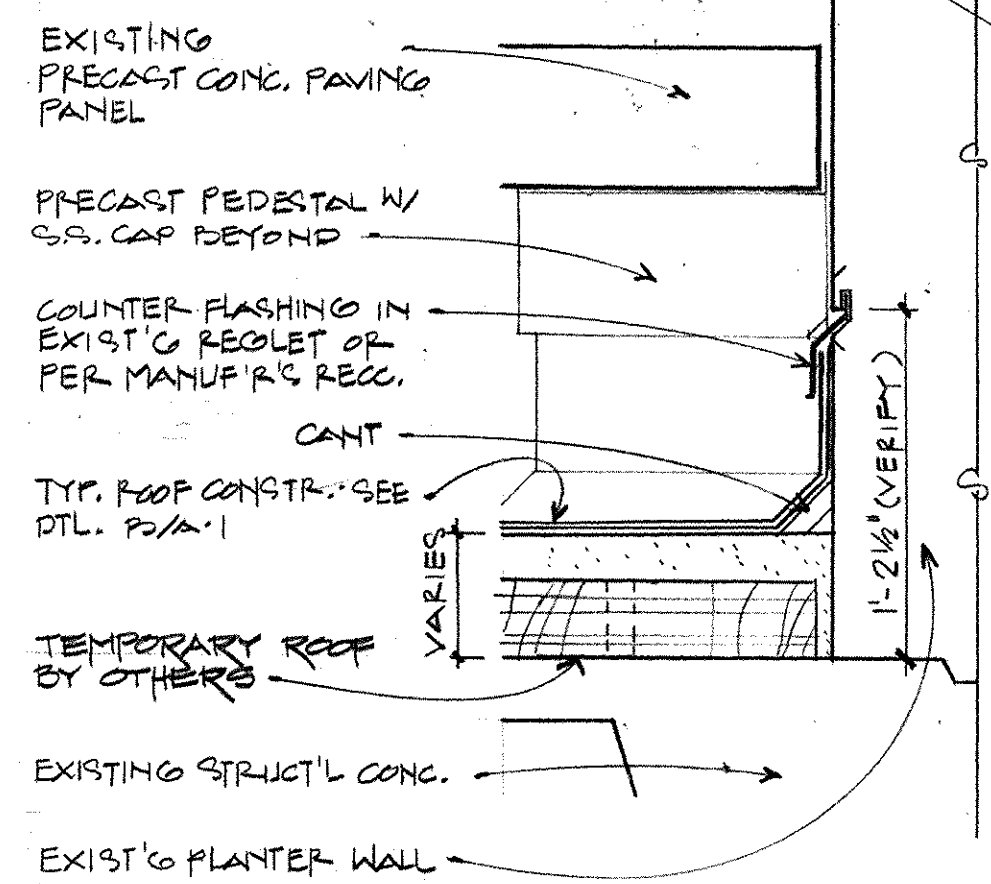 EXISTING
PRECAST CONC. PAVING
PANEL
PRECAST PEDESTAL W/
S.S. CAP BEYOND
COUNTER FLASHING IN
EXIST'G REGLET OR
PER MANUF'R'S RECC.
CANT
TYP. ROOF CONSTR. SEE
DTL. B/A-1
VARIES
1'-2½" (VERIFY)
TEMPORARY ROOF
BY OTHERS
EXISTING STRUCT'L CONC.
EXIST'G PLANTER WALL